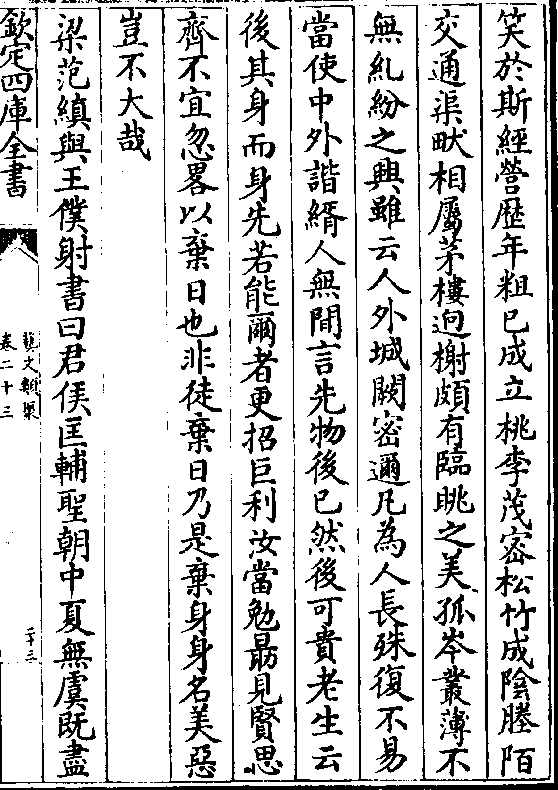 笑於斯經營歴年粗已成立桃李茂宻松竹成陰塍陌
交通渠畎相屬茅樓逈榭頗有臨眺之美孤岑叢薄不
無糺紛之興雖云人外城闕宻邇凡為人長殊復不易
當使中外諧緝人無間言先物後已然後可貴老生云
後其身而身先若能爾者更招巨利汝當勉勗見賢思
齊不宜忽畧以棄日也非徒棄日乃是棄身身名美惡
豈不大哉
梁范縝與王僕射書曰君侯匡輔聖朝中夏無虞既盡
欽定四庫全書
藝文類聚
卷二十三
二十三